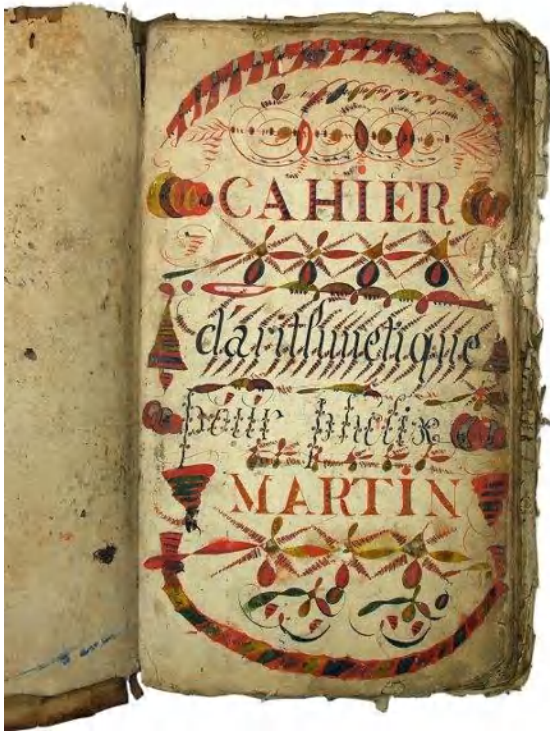 CAHIER
d'arithmetique
pour phelix
MARTIN